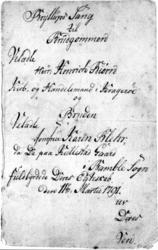 Bryllups Sang
til
Brudgommen
Velædle
Herr Henrich Biørn
Kiøb- og Handelsmand i Kragerøe
og
Bruden
Velædle
Jomfrue Karen
da de paa Gaard
i Bamble Sogn
fuldbyrdede Deres Egteskab
den 11te Martii 1791.
ven
Deres
Ven